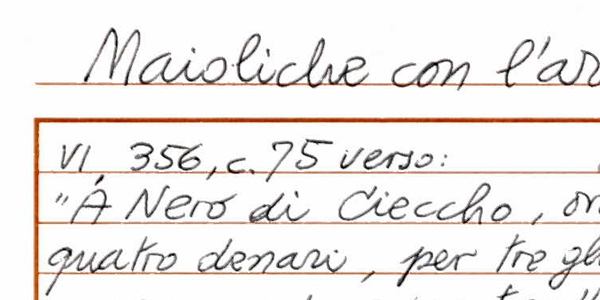 Maioliche con l'ar
VI, 356, c. 75 verso:
"A Nero di Cieccho, or
quatro denari, per tre gl